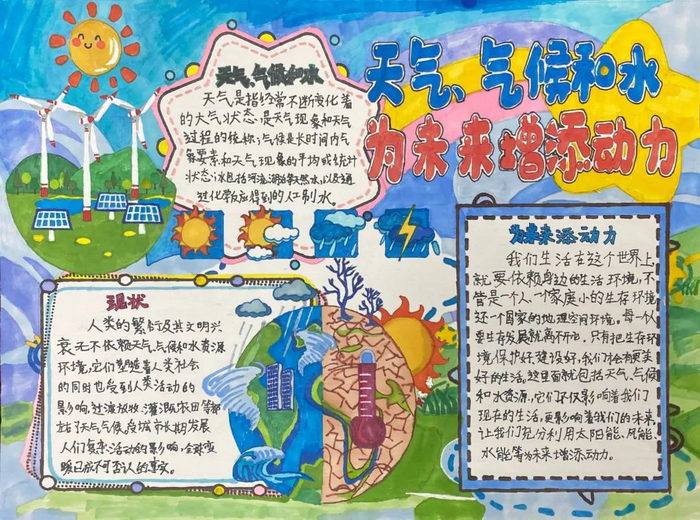 天气、气候和水
为未来增添动力
天气、气候和水
天气是指经常不断变化着
的大气状态,是天气现象和天气
过程的统称;气候是长时间内气
候要素和天气现象的平均或统计
状态;水包括河流、湖泊等天然水,以及通
过化学反应得到的人工制水。
现状
人类的繁衍及其文明兴
衰无不依赖天气、气候和水资源
环境,它们塑造着人类社会
的同时也受到人类活动的
影响,过渡放牧、灌溉农田等都
天气气候及城市长期发展
人们复杂活动的影响,全球变
暖已成不可否认的事实。
为未来添动力
我们生活在这个世界上
就要依赖身边的生活环境,不
管是一个人、一个家庭小的生存环境
还一个国家的地理空间环境。每一个人
要生存发展就离不开它,只有把生存环
境保护好、建设好,我们才会有更美
好的生活。这里面就包括天气、气候
和水资源,它们不仅影响着我们
现在的生活,更影响着我们的未来,
让我们充分利用太阳能、风能、
水能等为未来增添动力。